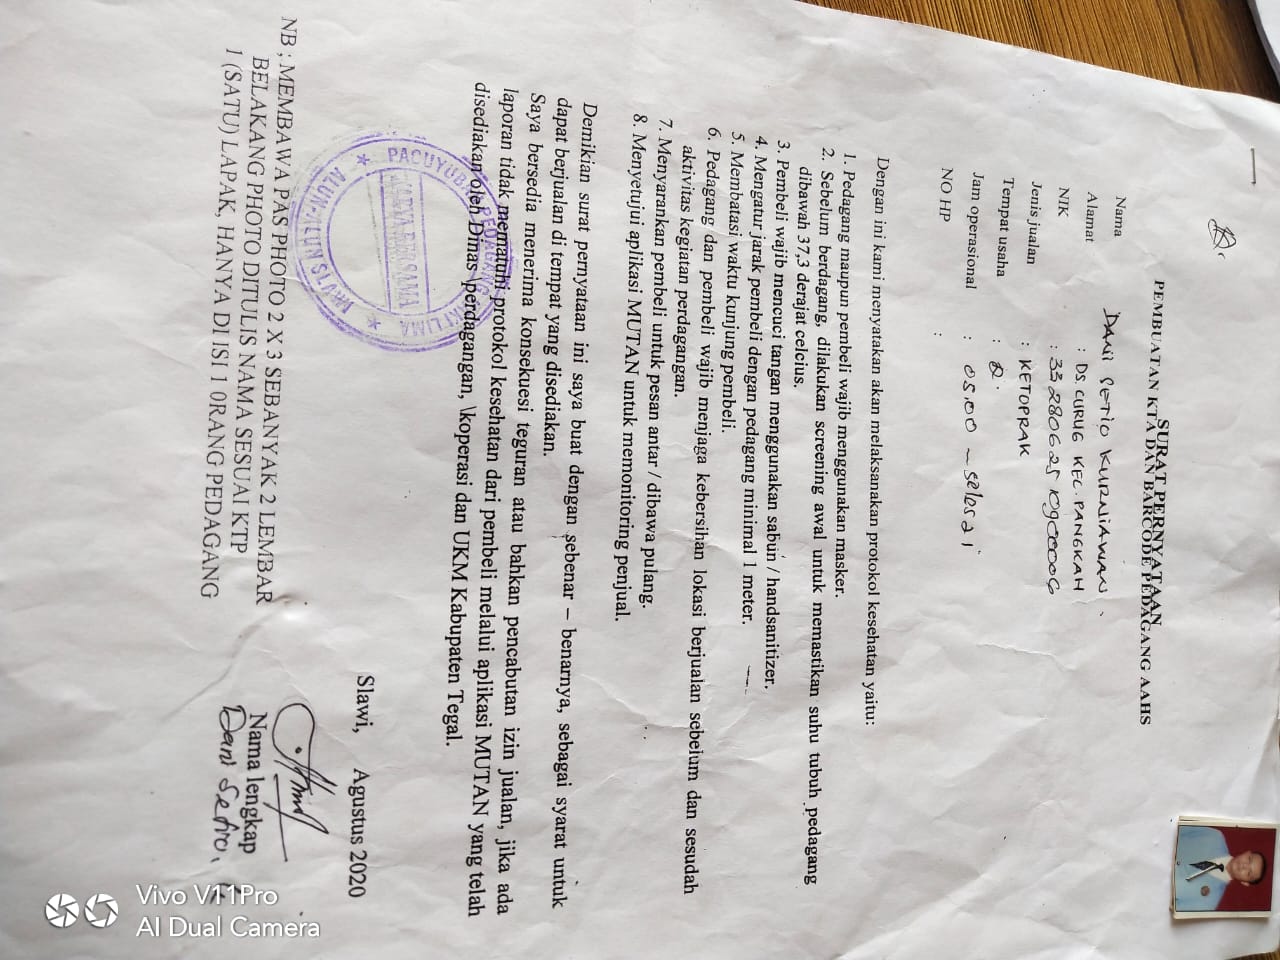 SURAT PERNYATAAN
PEMBUATAN KTA DAN BARCODE PEDAGANG AAHS
Nama DANI SETIO KURNIAWAN
Alamat : DS. CURUG KEC. PANGKAH
NIK : 3328062510900006
Jenis jualan : KETOPRAK
Tempat usaha :
Jam operasional : 05.00 – selesai
NO HP :
Dengan ini kami menyatakan akan melaksanakan protokol kesehatan yaitu:
1. Pedagang maupun pembeli wajib menggunakan masker.
2. Sebelum berdagang, dilakukan screening awal untuk memastikan suhu tubuh pedagang
dibawah 37,3 derajat celcius.
3. Pembeli wajib mencuci tangan menggunakan sabun / handsanitizer.
4. Mengatur jarak pembeli dengan pedagang minimal 1 meter.
5. Membatasi waktu kunjung pembeli.
6. Pedagang dan pembeli wajib menjaga kebersihan lokasi berjualan sebelum dan sesudah
aktivitas kegiatan perdagangan.
7. Menyarankan pembeli untuk pesan antar / dibawa pulang.
8. Menyetujui aplikasi MUTAN untuk memonitoring penjual.
Demikian surat pernyataan ini saya buat dengan sebenar – benarnya, sebagai syarat untuk
dapat berjualan di tempat yang disediakan.
Saya bersedia menerima konsekuesi teguran atau bahkan pencabutan izin jualan, jika ada
laporan tidak mematuhi protokol kesehatan dari pembeli melalui aplikasi MUTAN yang telah
disediakan oleh Dinas \perdagangan, \koperasi dan UKM Kabupaten Tegal.
PAGUYUBAN PEDAGANG KAKI LIMA
KARYA BERSAMA
ALUN-ALUN SLAWI
Slawi, Agustus 2020
Nama lengkap
Dani Setio.
NB ; MEMBAWA PAS PHOTO 2 X 3 SEBANYAK 2 LEMBAR
BELAKANG PHOTO DITULIS NAMA SESUAI KTP
1 (SATU) LAPAK, HANYA DI ISI 1 0RANG PEDAGANG
Vivo V11Pro
AI Dual Camera